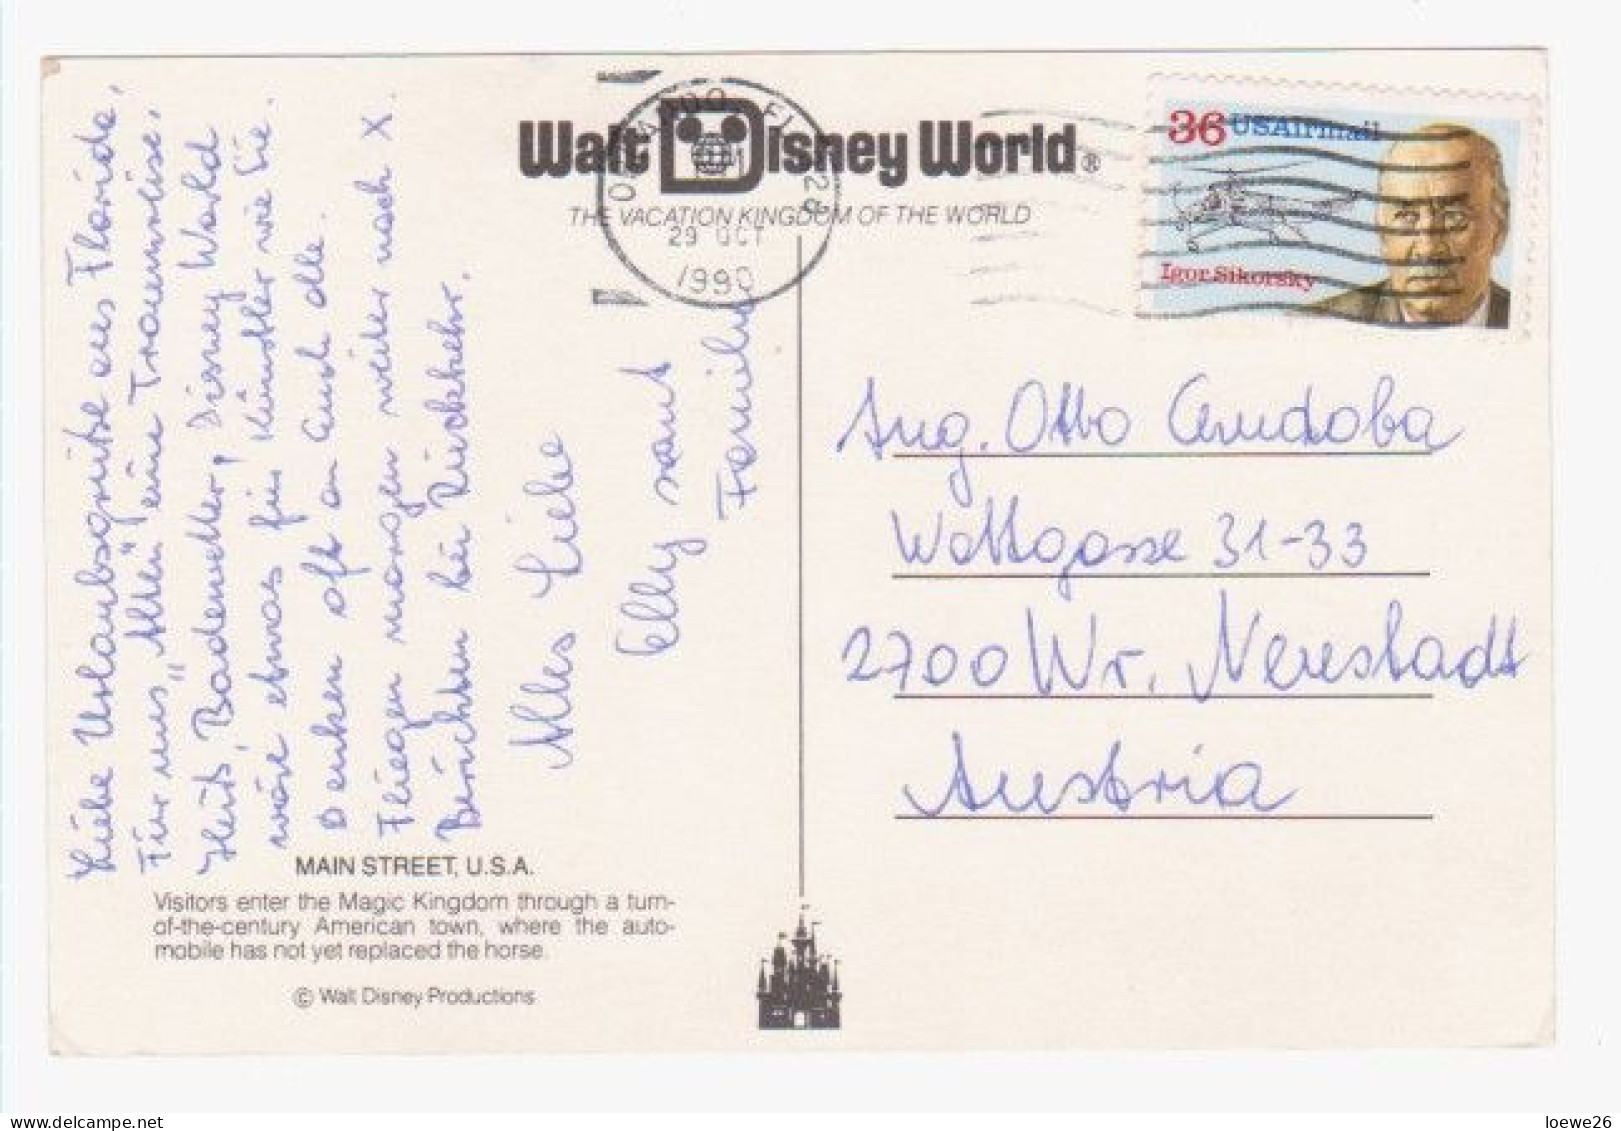 Walt Disney World®
THE VACATION KINGDOM OF THE WORLD
ORLANDO FL 328
PM
29 OCT
1990
36 USAirmail
Igor Sikorsky
Liebe Urlaubsgrüße aus Florida,
Für uns „Alten" eine Traumreise.
Heut, Badewetter, Disney World
wäre etwas für Künstler wie Sie.
Denken oft an Euch alle.
Fliegen morgen weiter nach X.
Berichten bei Rückkehr.
Alles Liebe
Elly samt
Familie
Ing. Otto
Wattgasse 31-33
2700 Wr. Neustadt
Austria
MAIN STREET, U.S.A.
Visitors enter the Magic Kingdom through a turn-
of-the-century American town, where the auto-
mobile has not yet replaced the horse.
© Walt Disney Productions
delcampe.net
loewe26